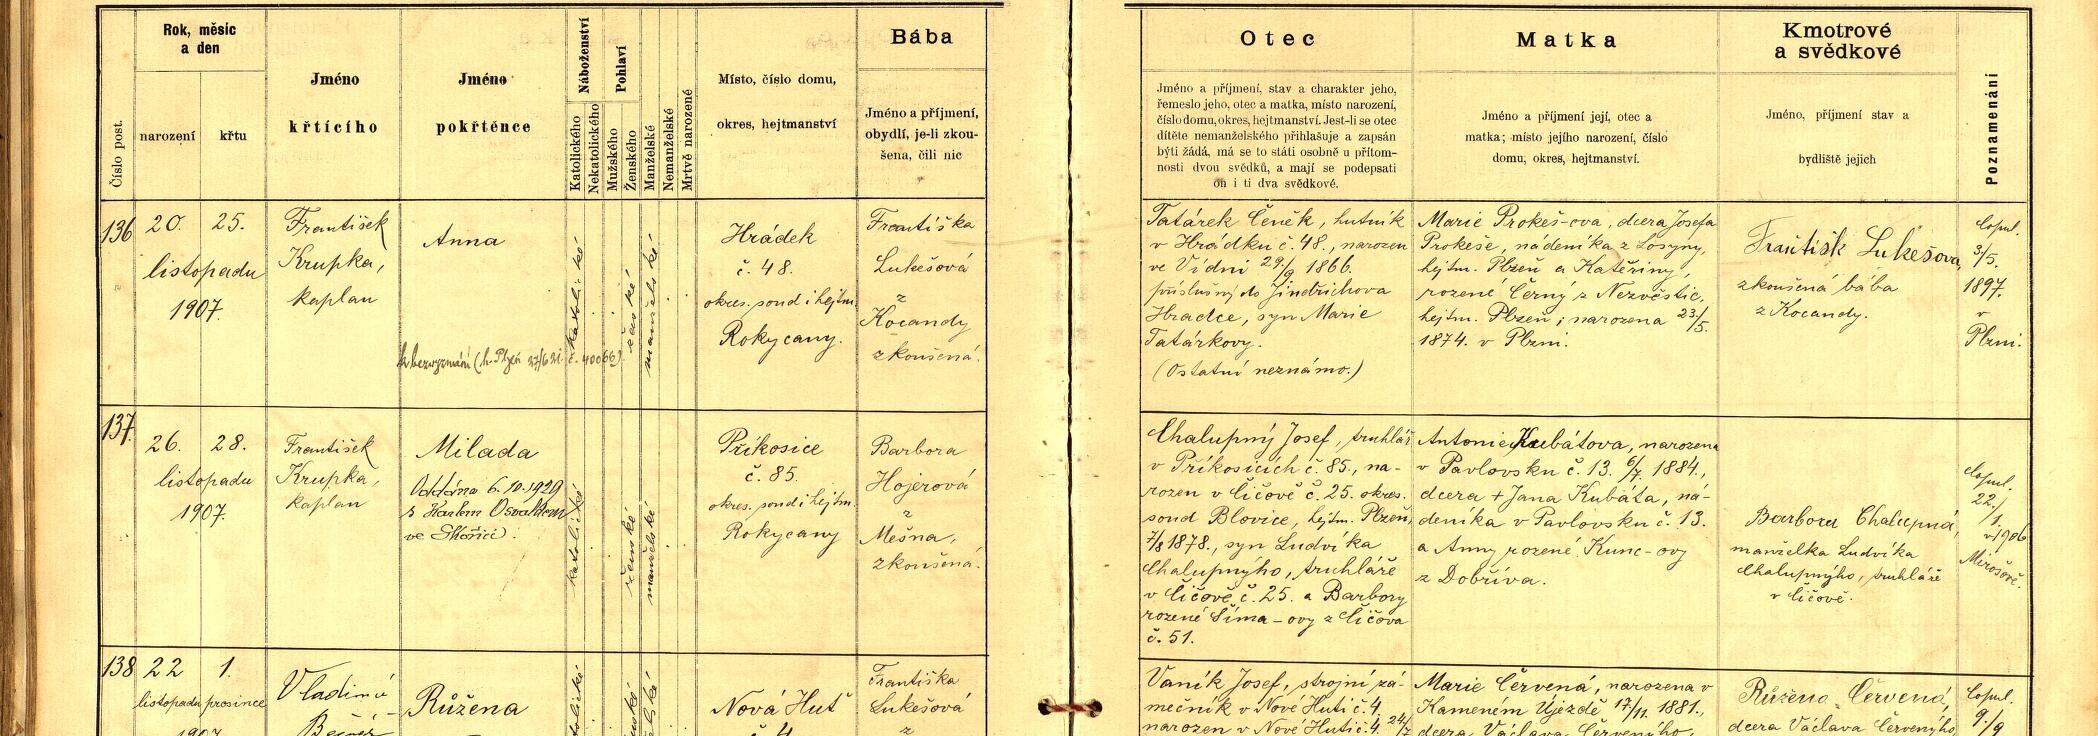 Rok, měsíc
a den
narození
křtu
Číslo post.
Jméno
křtícího
Jméno
pokřtěnce
Náboženství
Katolického
Nekatolického
Pohlaví
Mužského
Ženského
Manželské
Nemanželské
Mrtvě narozené
Místo, číslo domu,
okres, hejtmanství
Bába
Jméno a příjmení,
obydlí, je-li zkou-
šena, čili nic
Otec
Jméno a příjmení, stav a charakter jeho,
řemeslo jeho, otec a matka, místo narození,
číslo domu, okres, hejtmanství. Jest-li se otec
dítěte nemanželského přihlašuje a zapsán
býti žádá, má se to státi osobně u přítom-
nosti dvou svědků, a mají se podepsati
on i ti dva svědkové.
Matka
Jméno a příjmení její, otec a
matka; místo jejího narození, číslo
domu, okres, hejtmanství.
Kmotrové
a svědkové
Jméno, příjmení stav a
bydliště jejich
Poznamenání
136
20. 25.
listopadu
1907.
František
Krupka,
kaplan
Anna
katolické
ženské
manželské
Hrádek
č. 48.
okres. soud i hejtm.
Rokycany.
Františka
Lukešová
z
Kocandy
zkoušená.
Tatárek Čeněk, hutník
v Hrádku č. 48., narozen
ve Vídni 29./9 1866.
příslušný do Jindřichova
Hradce, syn Marie
Tatárkovy.
(Ostatní neznámo.)
Marie Prokeš-ova, dcera Josefa
Prokeše, nádeníka z Losyny,
hejtm. Plzeň a Kateřiny,
rozené Černý z Nezvěstic,
hejtm. Plzeň; narozena 23./5.
1874. v Plzni.
Lukešova,
zkoušená bába
z Kocandy.
Copul.
3/5.
1897.
v
Plzni.
137.
26. 28.
listopadu
1907.
František
Krupka,
kaplan
Milada
Oddána 6.10.1929
s Karlem
ve
katolické
ženské
manželské
Příkosice
č. 85.
okres. soud i hejtm.
Rokycany
Barbora
Hojerová
z
Mešna,
zkoušená.
Chalupný Josef, truhlář
v Příkosicích č. 85., na-
rozen v Čičově č. 25. okres.
soud Blovice, hejtm. Plzeň,
7/8 1878., syn Ludvíka
Chalupnýho, truhláře
v Čičově č. 25. a Barbory
rozené Šíma-ovy z Čičova
č. 51.
Antonie Kubátova, narozena
v Pavlovsku č. 13. 6/7. 1884.,
dcera + Jana Kubáta, ná-
deníka v Pavlovsku č. 13.
a Anny rozené Kunc-ovy
z Dobříva.
Barbora Chalupná,
manželka Ludvíka
Chalupnýho, truhláře
v Čičově.
Copul.
22./
1.
1906
v
Mirošově.
138
22 1.
listopadu prosince
1907
Vladimír
Růžena
Nová Huť
č. 4
Františka
Lukešová
z
Vaník Josef, strojní zá-
mečník v Nové Huti č. 4,
narozen v Nové Huti č. 4. 24./
Marie Červená, narozena v
Kameném Újezdě 17/11. 1881.,
dcera Václava Červenýho,
Růžena Červená,
dcera Václava Červenýho
Copul.
9./9